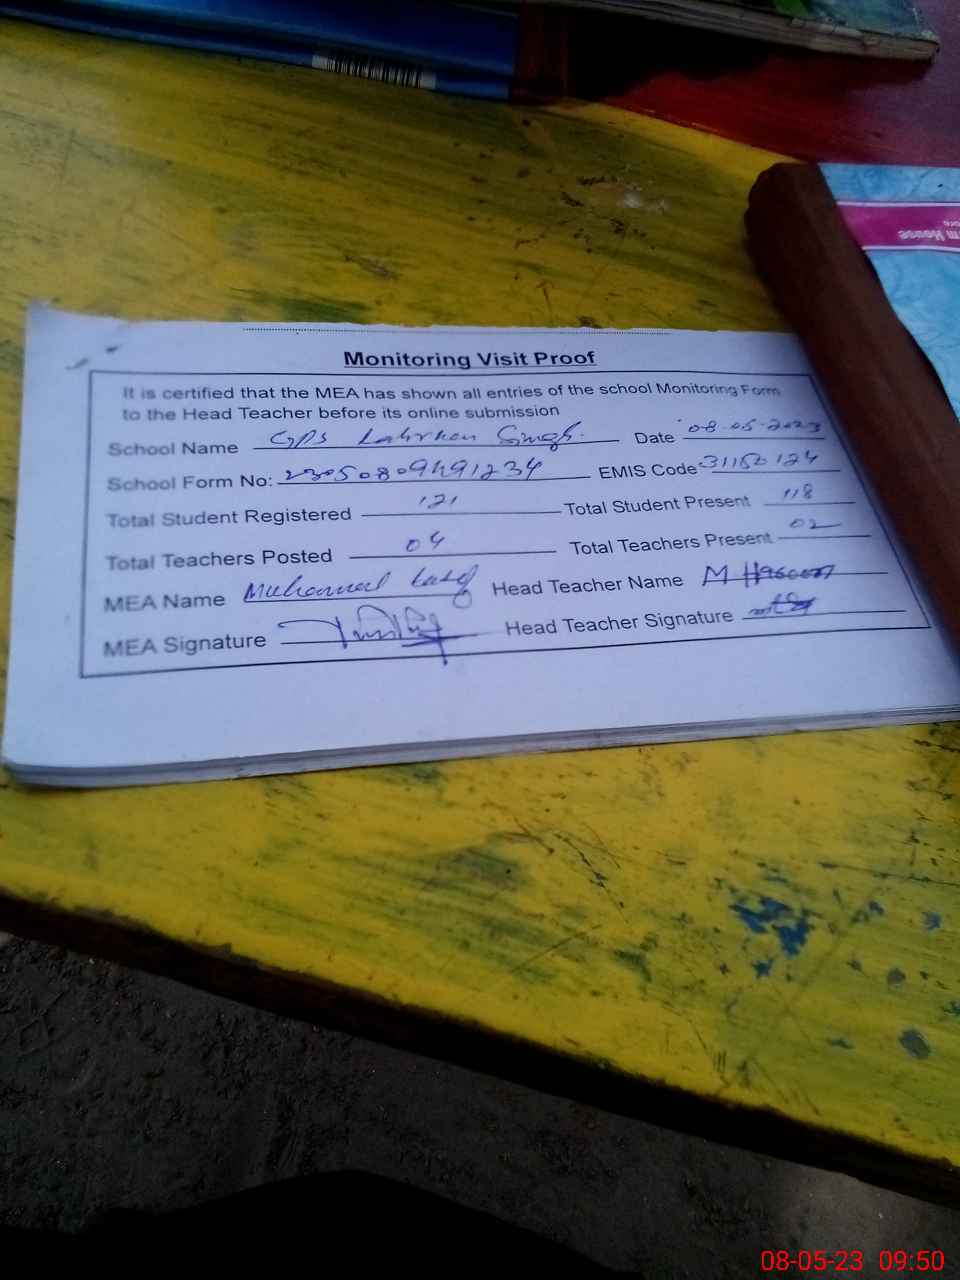 m House
Monitoring Visit Proof
It is certified that the MEA has shown all entries of the school Monitoring Form
to the Head Teacher before its online submission
School Name GPS Singh. Date 08-05-2023
School Form No: EMIS Code
Total Student Registered 121 Total Student Present 118
Total Teachers Posted 04 Total Teachers Present 02
MEA Name Muhammad Head Teacher Name M Hassan
MEA Signature Head Teacher Signature
08-05-23 09:50